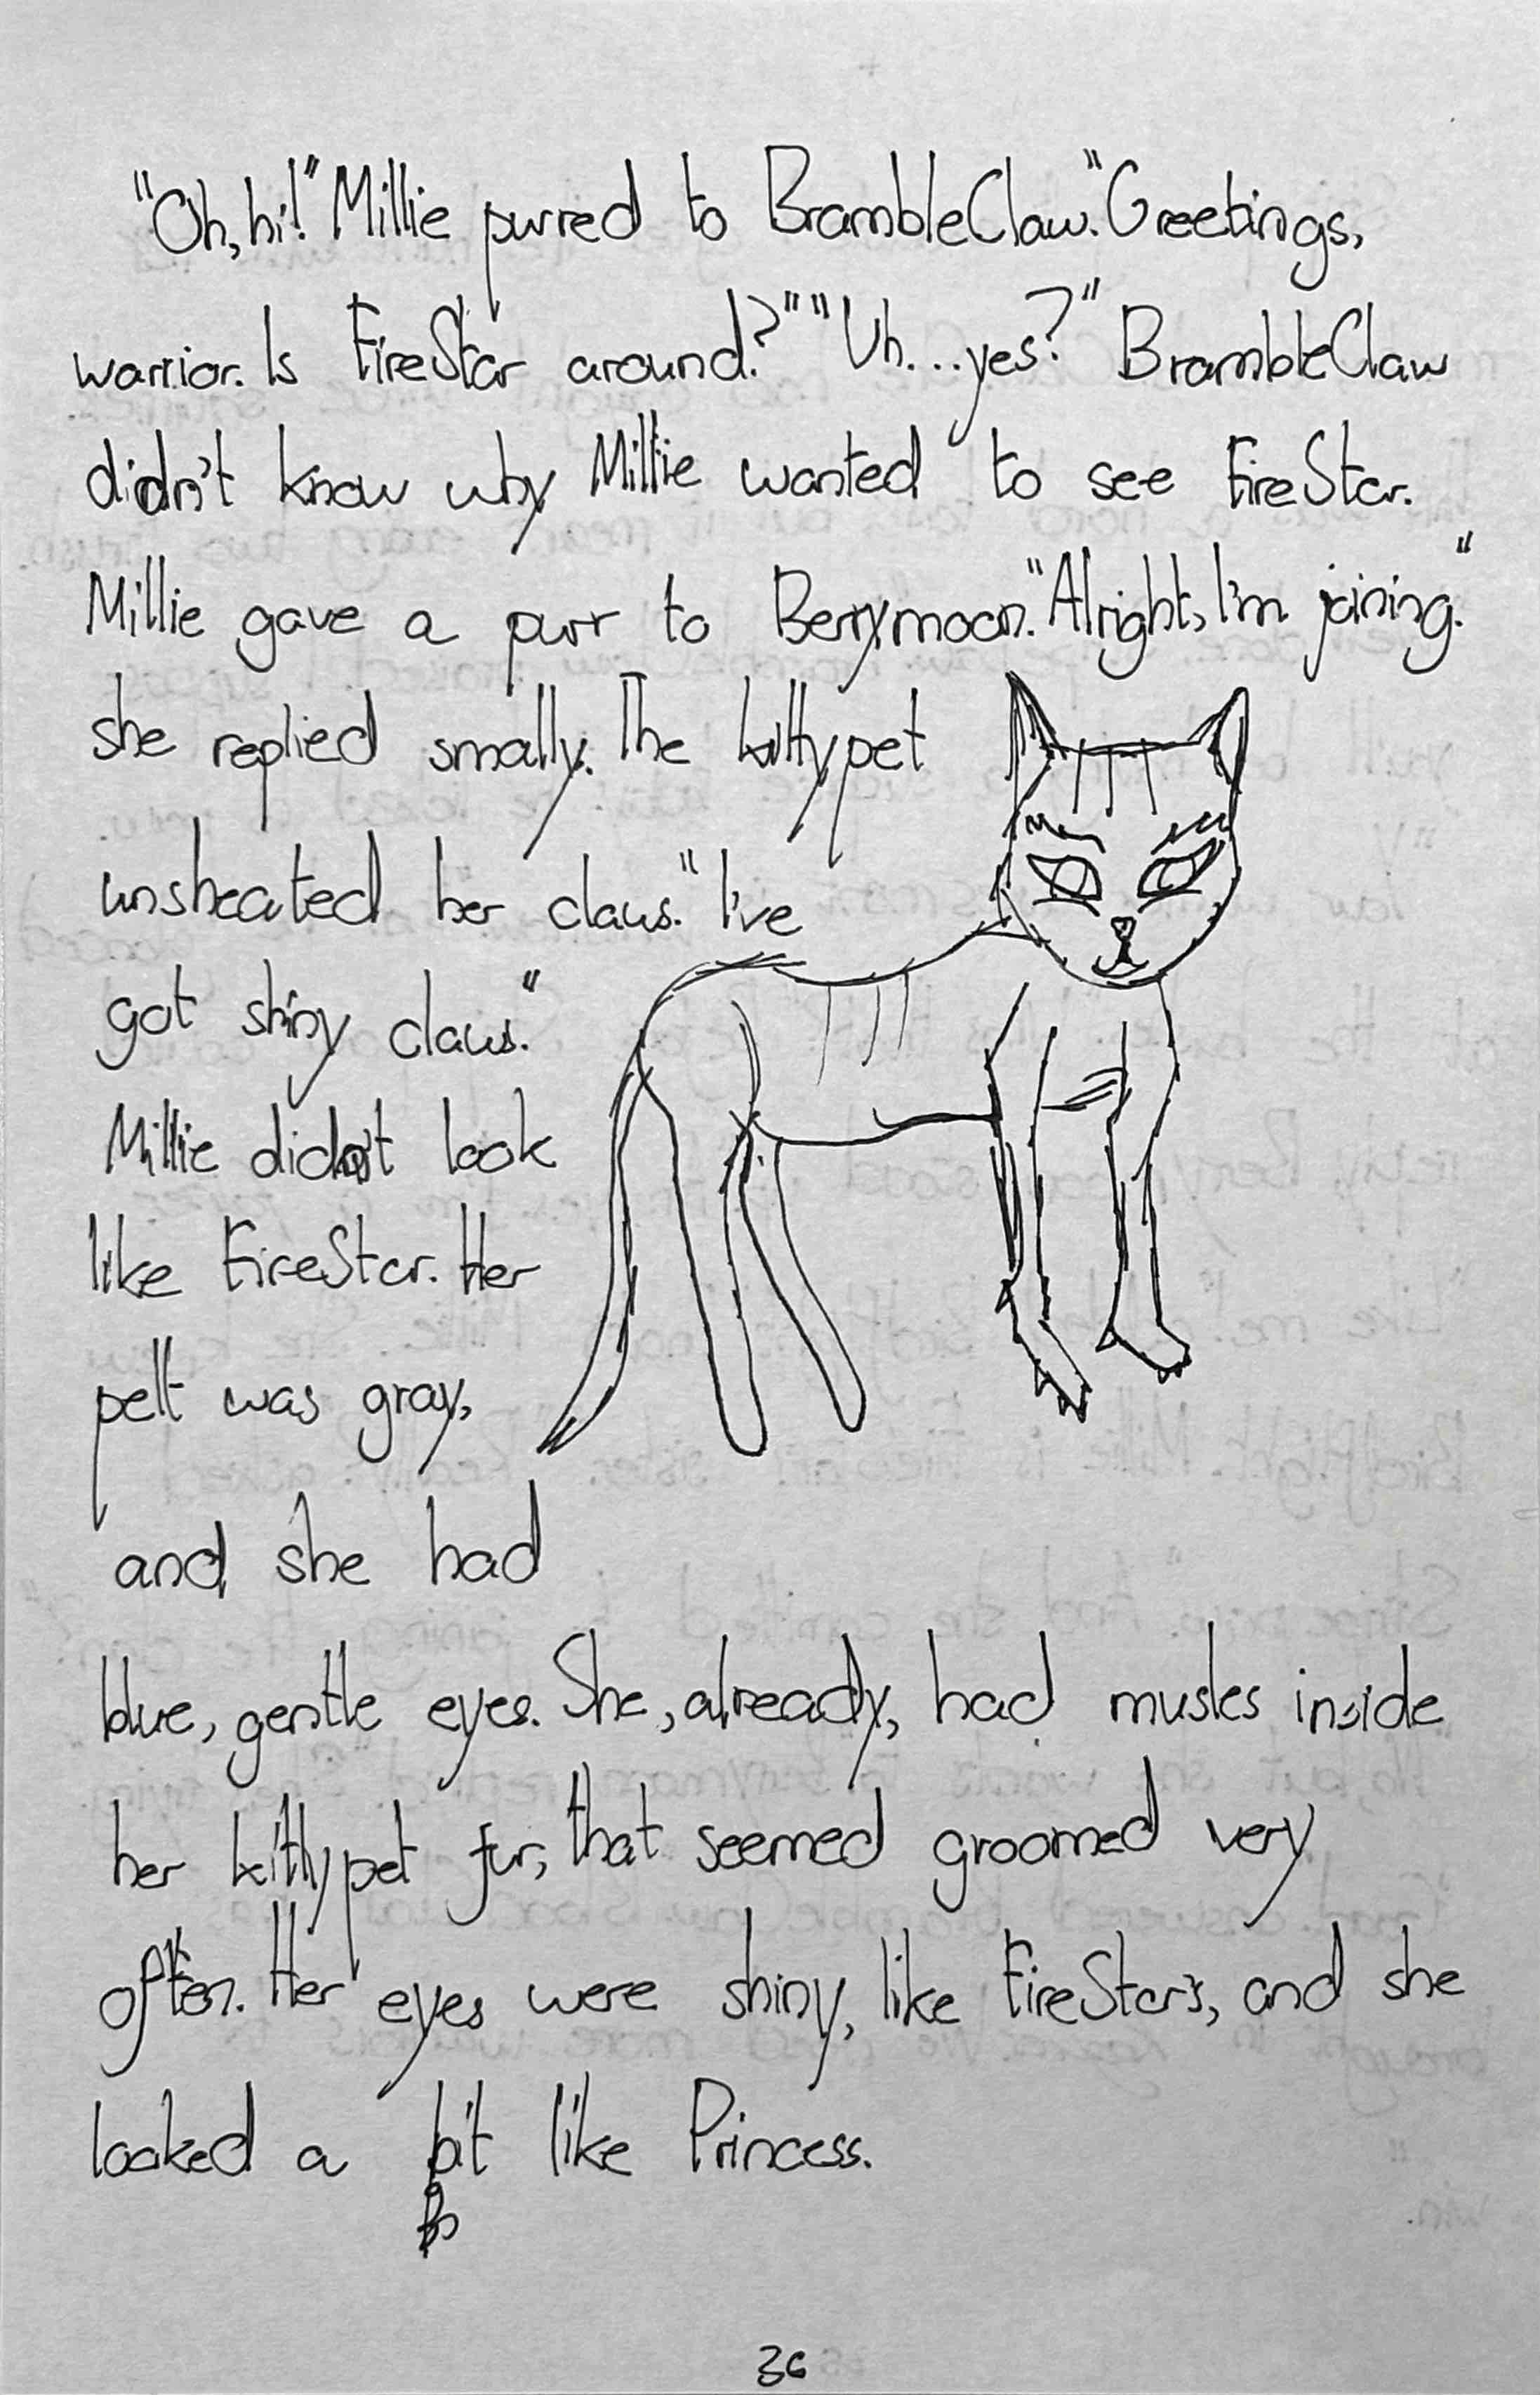 "Oh, hi!" Millie purred to BrambleClaw. "Greetings,
warrior. Is FireStar around?" "Uh...yes?" BrambleClaw
didn't know why Millie wanted to see FireStar.
Millie gave a purr to Berrymoon. "Alright, I'm joining."
she replied smally. The kittypet
unsheated her claws. "I've
got shiny claws."
Millie didn't look
like FireStar. Her
pelt was gray,
and she had
blue, gentle eyes. She, already, had musles inside
her kittypet fur, that seemed groomed very
often. Her eyes were shiny, like FireStar's, and she
looked a bit like Princess.
36